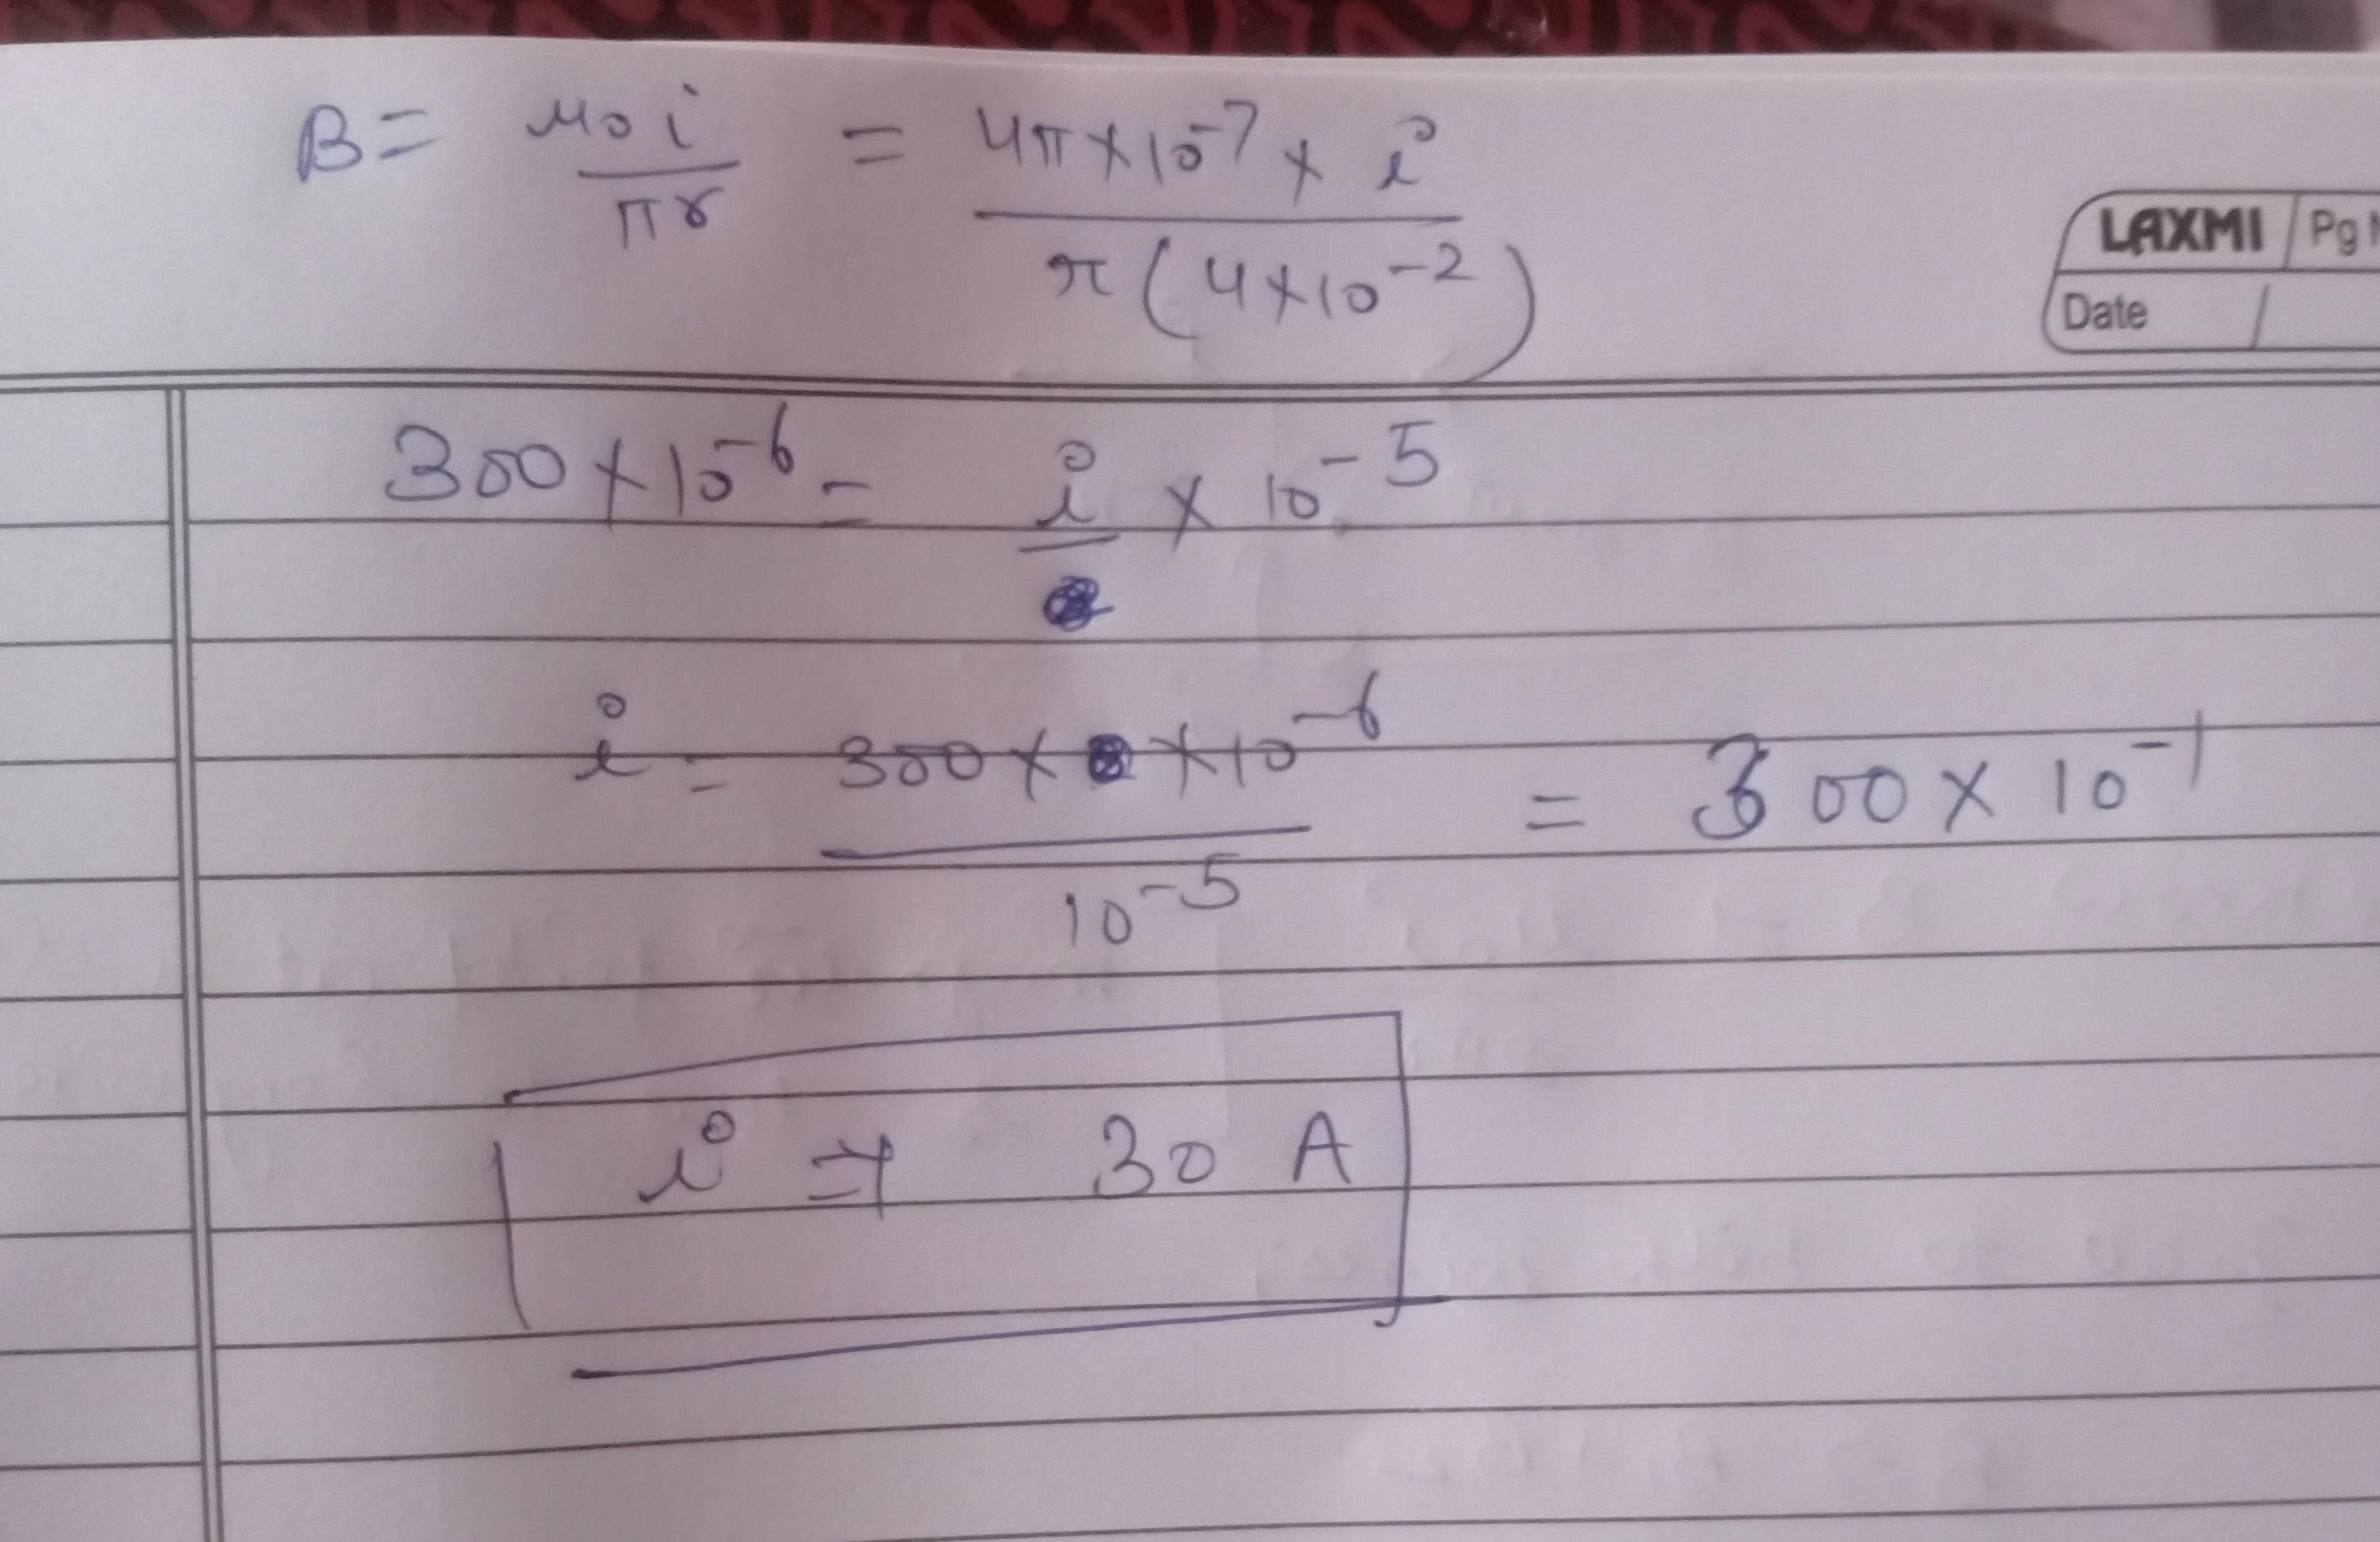 B = μ₀i / πr = 4π×10⁻⁷ × i / π(4×10⁻²)
LAXMI Pg
Date /
300×10⁻⁶ = i × 10⁻⁵
i = 300 × × 10⁻⁶ / 10⁻⁵ = 300 × 10⁻¹
i ⇒ 30 A